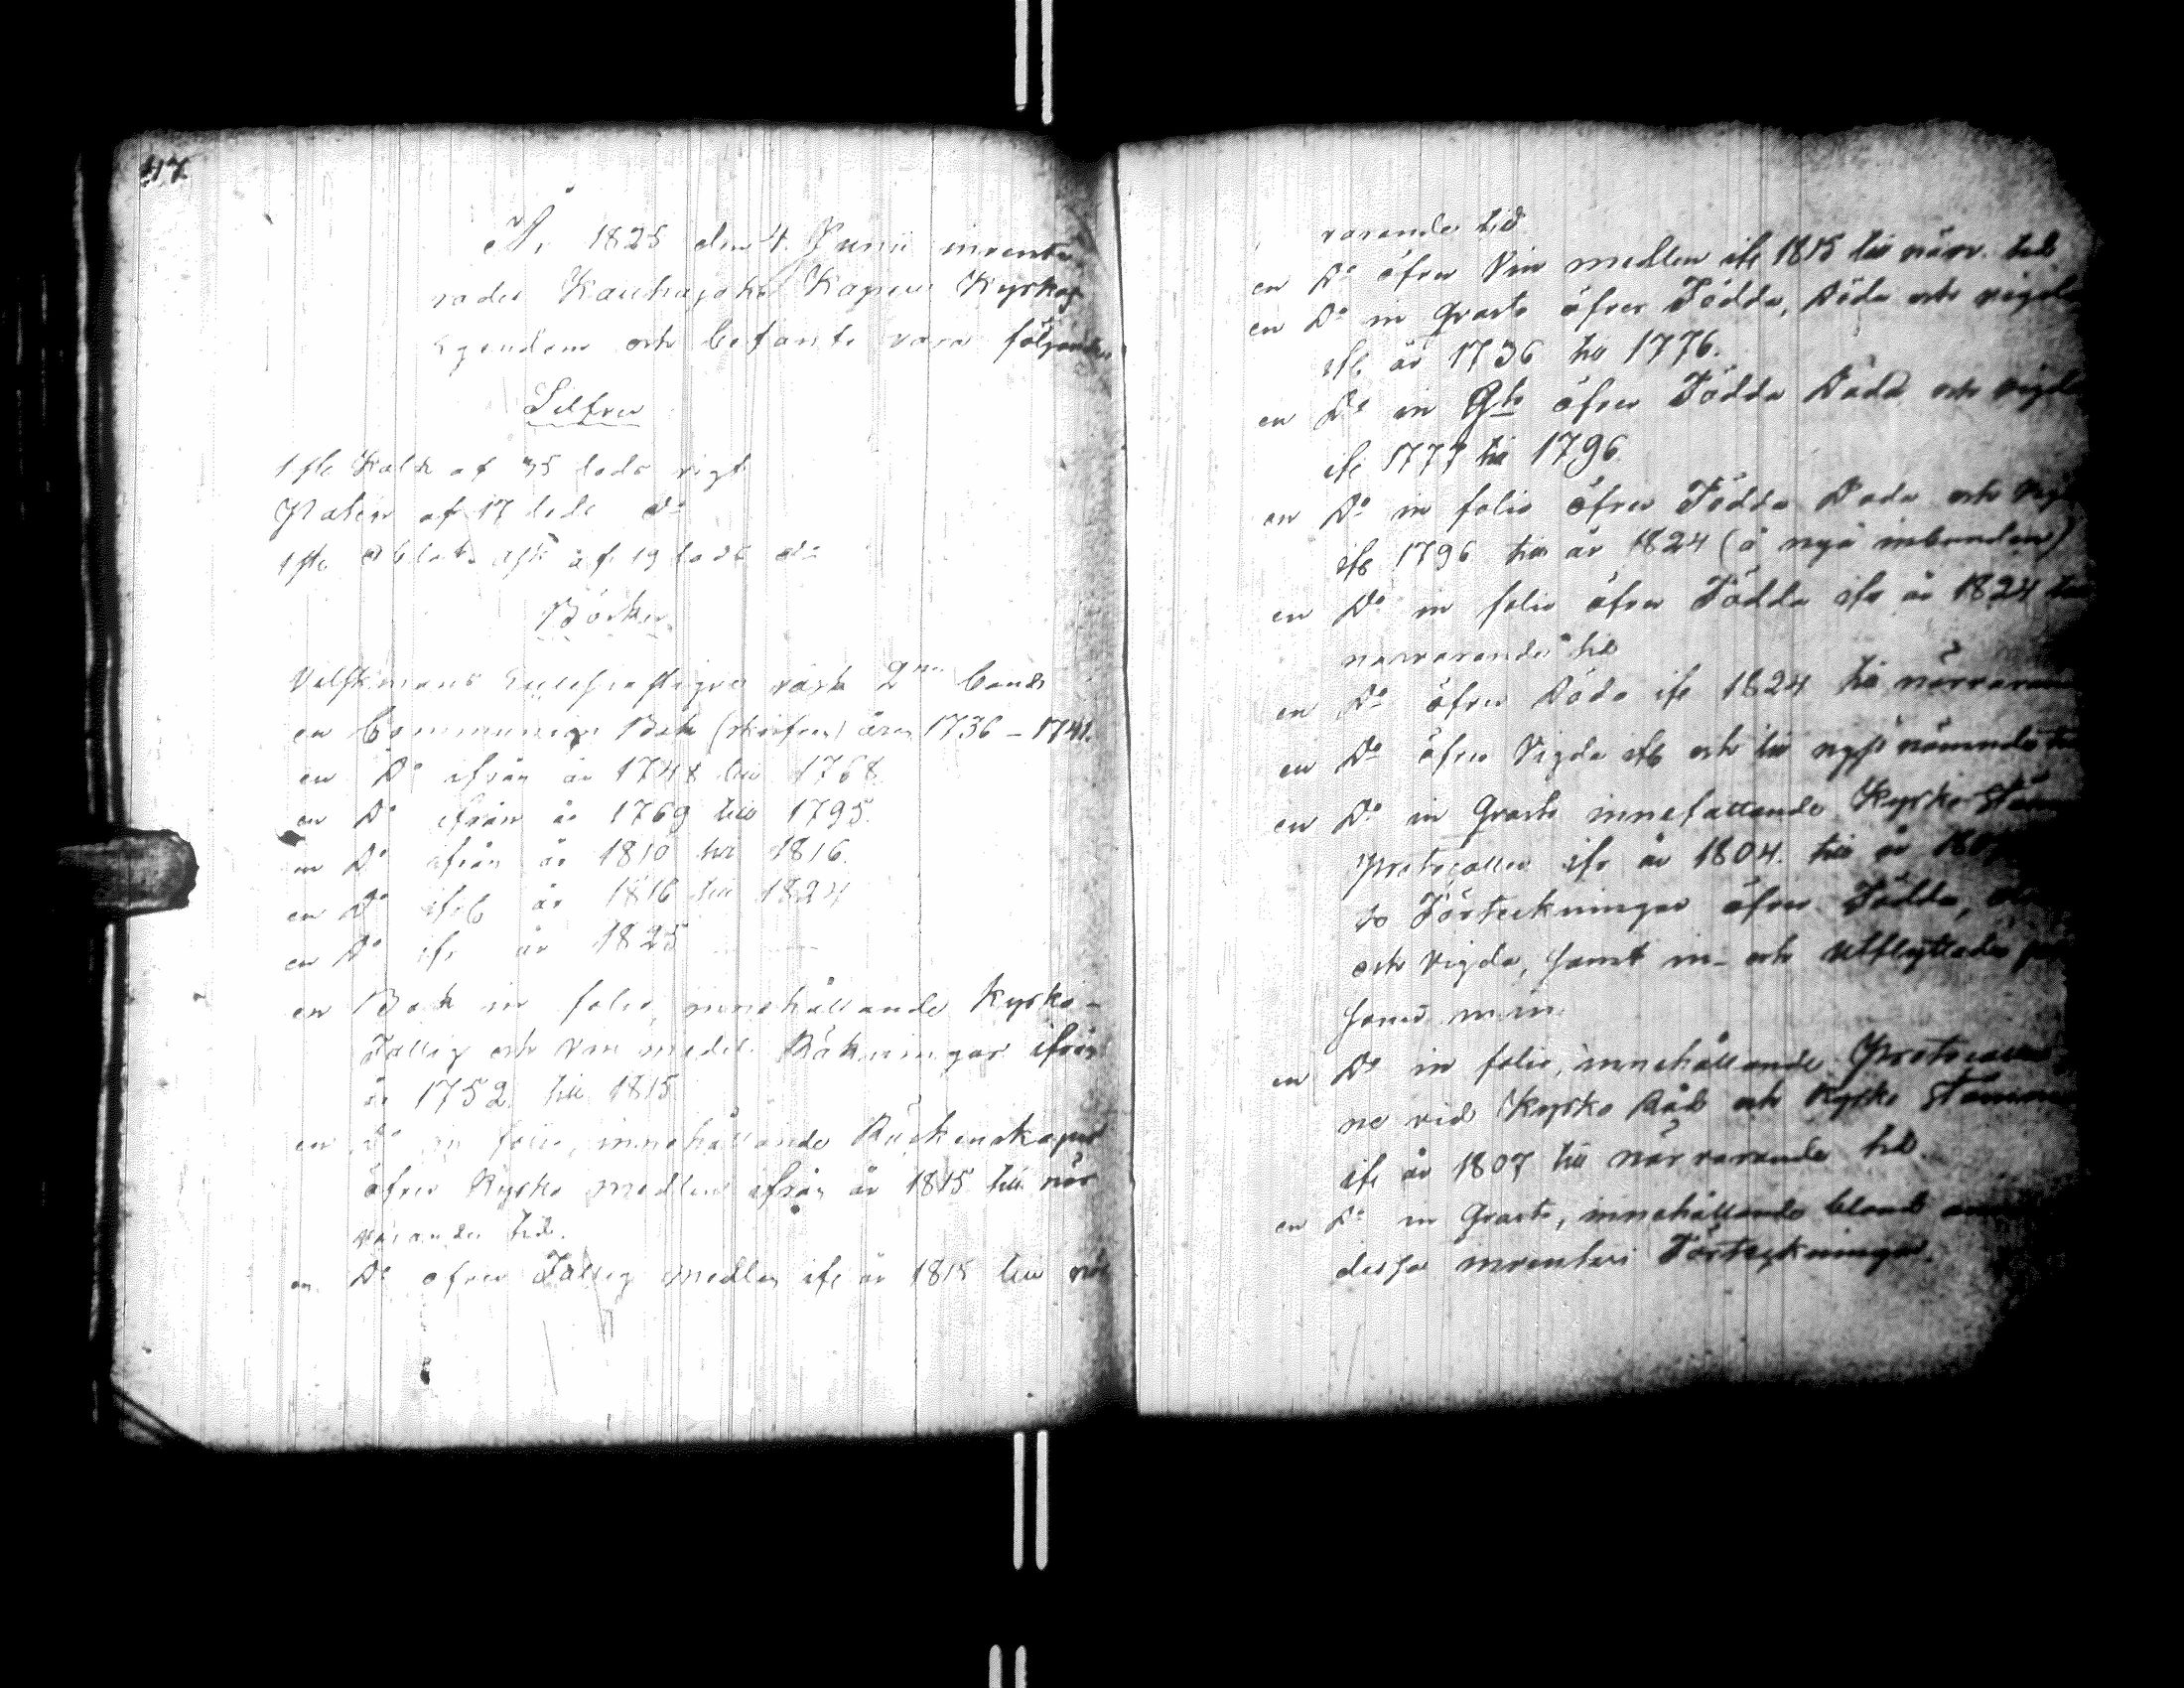 47
År 1825 den 4. Junii invente-
rades Kauhajoki Kapell Kyrkas
Egendom och befants vara följande
Silfver
1 st. Kalk af 35 lods vigt
Paten af 17 lods do
1 st. Oblat-ask af 19 lods do
Böcker
en Communion Bok (skrifven) åren 1736 – 1741.
en Do ifrån år 1748 till 1768
en Do ifrån år 1769 till 1795.
en Do ifrån år 1810 till 1816.
en Do ifr. år 1816 till 1824
en Do ifr. år 1825
en Bok in folio, innehållande Kyrko-
Fattig och Vin medel Räkningar ifrån
år 1752 till 1815
en Do in folio, innehållande Räkenskaper
öfver Kyrko medlen ifrån år 1815 till när
varande tid.
en Do öfver Fattig medlen ifr år 1815 till när
varande tid
en Do öfver Vin medlen ifr 1815 till närv. tid
en Do in Qvarto öfver Födda, Döda och vigde
ifr. år 1736 till 1776.
en Do in Qto öfver Födda Döda och vigde
ifr 1777 till 1796
en Do in folio öfver Födda Döda och
ifr 1796 till år 1824 (å nyå inbunden)
en Do in folio öfver Födda ifr år 1824 till
närvarande tid
en Do öfver Döda ifr 1824 till närvaran
en Do öfver Vigda ifr och till nyss nämnde
en Do in Qvarto innefattande Kyrko-Stäm
Protocoller ifr år 1804. till år
Förteckningar öfver Födda,
och Vigda, samt in- och Utflyttade
soner m.m.
en Do in folio, innehållande Protocoller
ne vid Kyrko Råd och Kyrko Stämm
ifr år 1807 till närvarande tid.
en Do in Qvarto, innehållande bland
dessa inventarii Förteckningar.